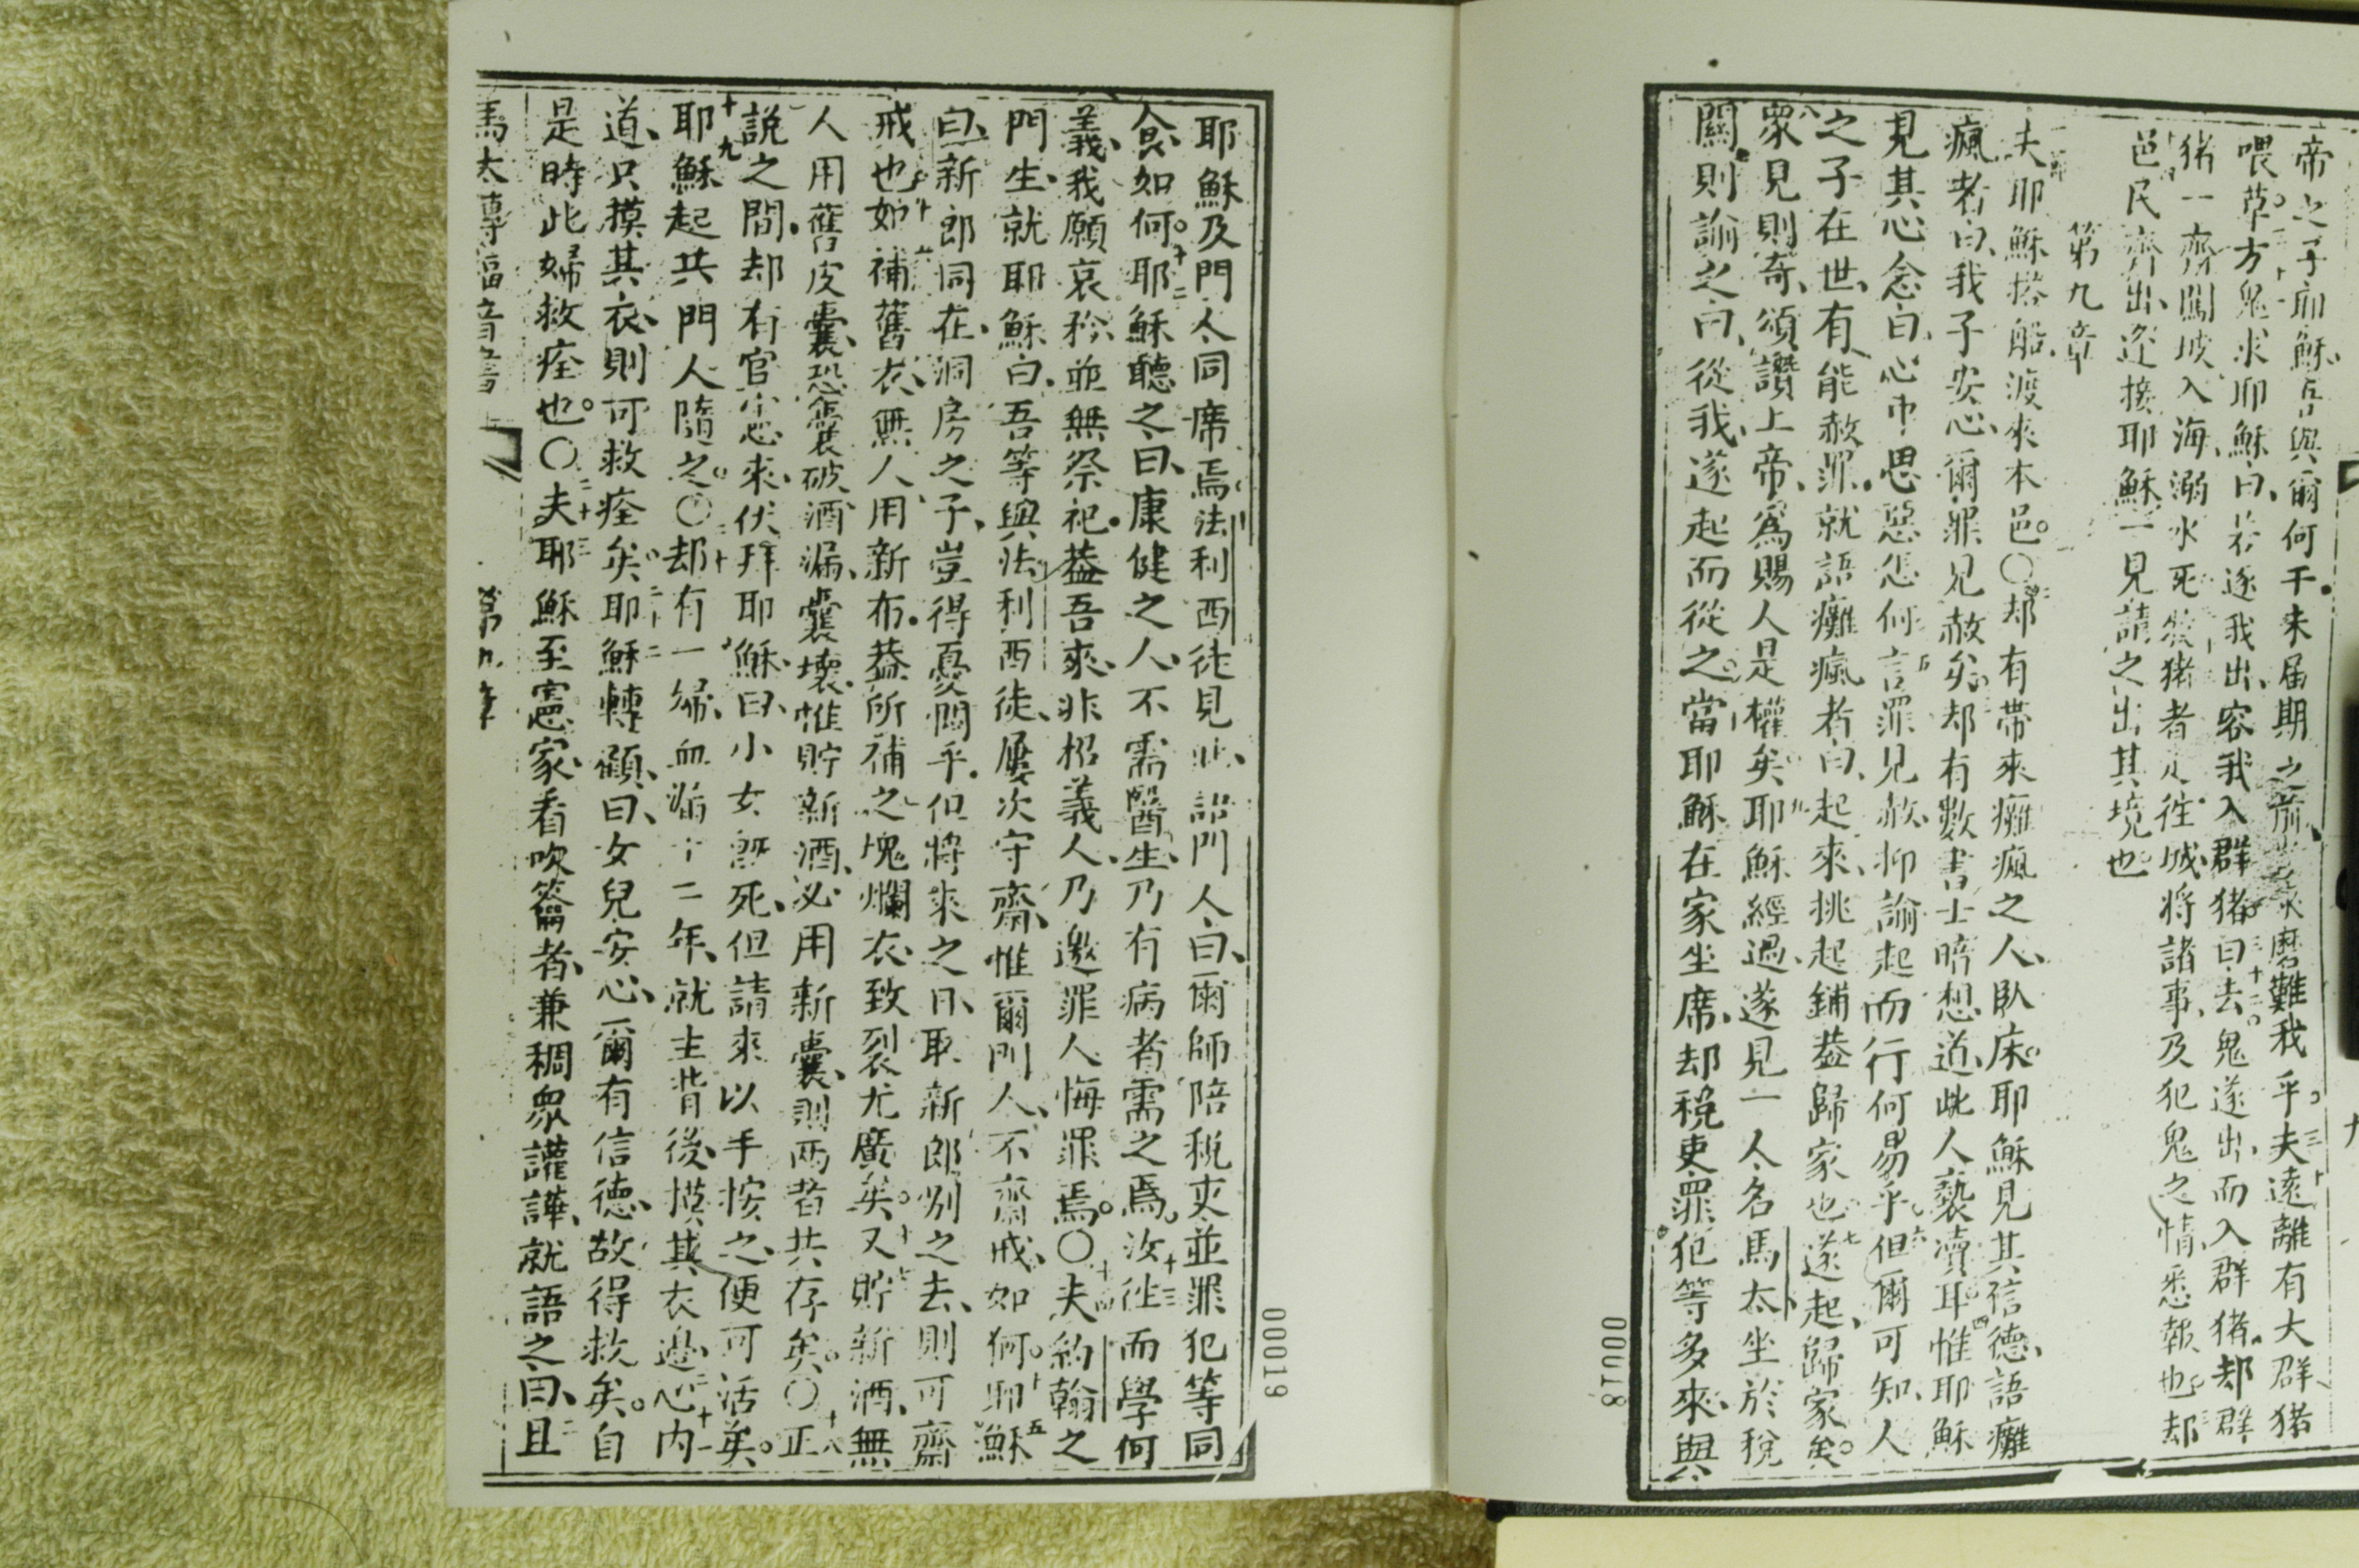 帝之子耶穌、吾與爾何干、未届期之前、來磨難我乎。三十夫遠離有大群猪
喂草。三十一方鬼求耶穌曰、若逐我出、容我入群猪。三十二曰去。鬼遂出、而入群猪、却群
猪一齊闖坡入海、溺水死。猪者走往城、將諸事、及犯鬼之情、悉報也。却
邑民齊出、迎接耶穌、一見請之出其境也
第九章
夫耶穌搭船、渡來本邑。〇却有帶來癱瘋之人、臥床。耶穌見其信德、語癱
瘋者曰、我子安心、爾罪見赦矣。却有數書士暗想道、此人褻凟耳。四惟耶穌
見其心念曰、心中思惡怎何。五言罪見赦、抑諭起而行、何易乎。六但爾可知、人
之子在世、有能赦罪、就語癱瘋者曰、起來、挑起鋪葢歸家也。七遂起、歸家矣。
八衆見則奇、頌讚上帝、爲賜人是權矣。九耶穌經過、遂見一人、名馬太、坐於稅
關、則諭之曰、從我、遂起而從之。當耶穌在家坐席、却稅吏罪犯等多來、與
00018
耶穌及門人同席焉。法利西徒見此、詔門人曰、爾師陪稅吏並罪犯等同
食如何。十二耶穌聽之曰、康健之人、不需醫生、乃有病者需之焉。十三汝往而學何
義、我願哀矜、並無祭祀。葢吾來、非招義人、乃邀罪人悔罪焉。〇十四夫約翰之
門生、就耶穌曰、吾等與法利西徒、屢次守齋、惟爾門人、不齋戒如何。十五耶穌
曰、新郎同在、洞房之子、豈得憂悶乎。但將來之日、取新郎别之去、則可齋
戒也。十六如補舊衣、無人用新布、葢所補之塊爛衣、致裂尤廣矣。十七又貯新酒、無
人用舊皮囊、恐舊囊破酒漏、囊壞、惟貯新酒、必用新囊、則兩者共存矣。〇十八正
說之間、却有官憲來、伏拜耶穌曰、小女既死、但請來以手按之、便可活矣。
十九耶穌起、共門人隨之。〇二十却有一婦、血漏十二年、就主背後、摸其衣邊、二十一心內
道、只摸其衣、則可救痊矣。二十二耶穌轉顧曰、女兒安心、爾有信德、故得救矣。自
是時此婦救痊也。〇二十三夫耶穌至憲家、看吹籥者、兼稠衆讙譁、就語之曰、且
馬太傳福音書 第九章
00019